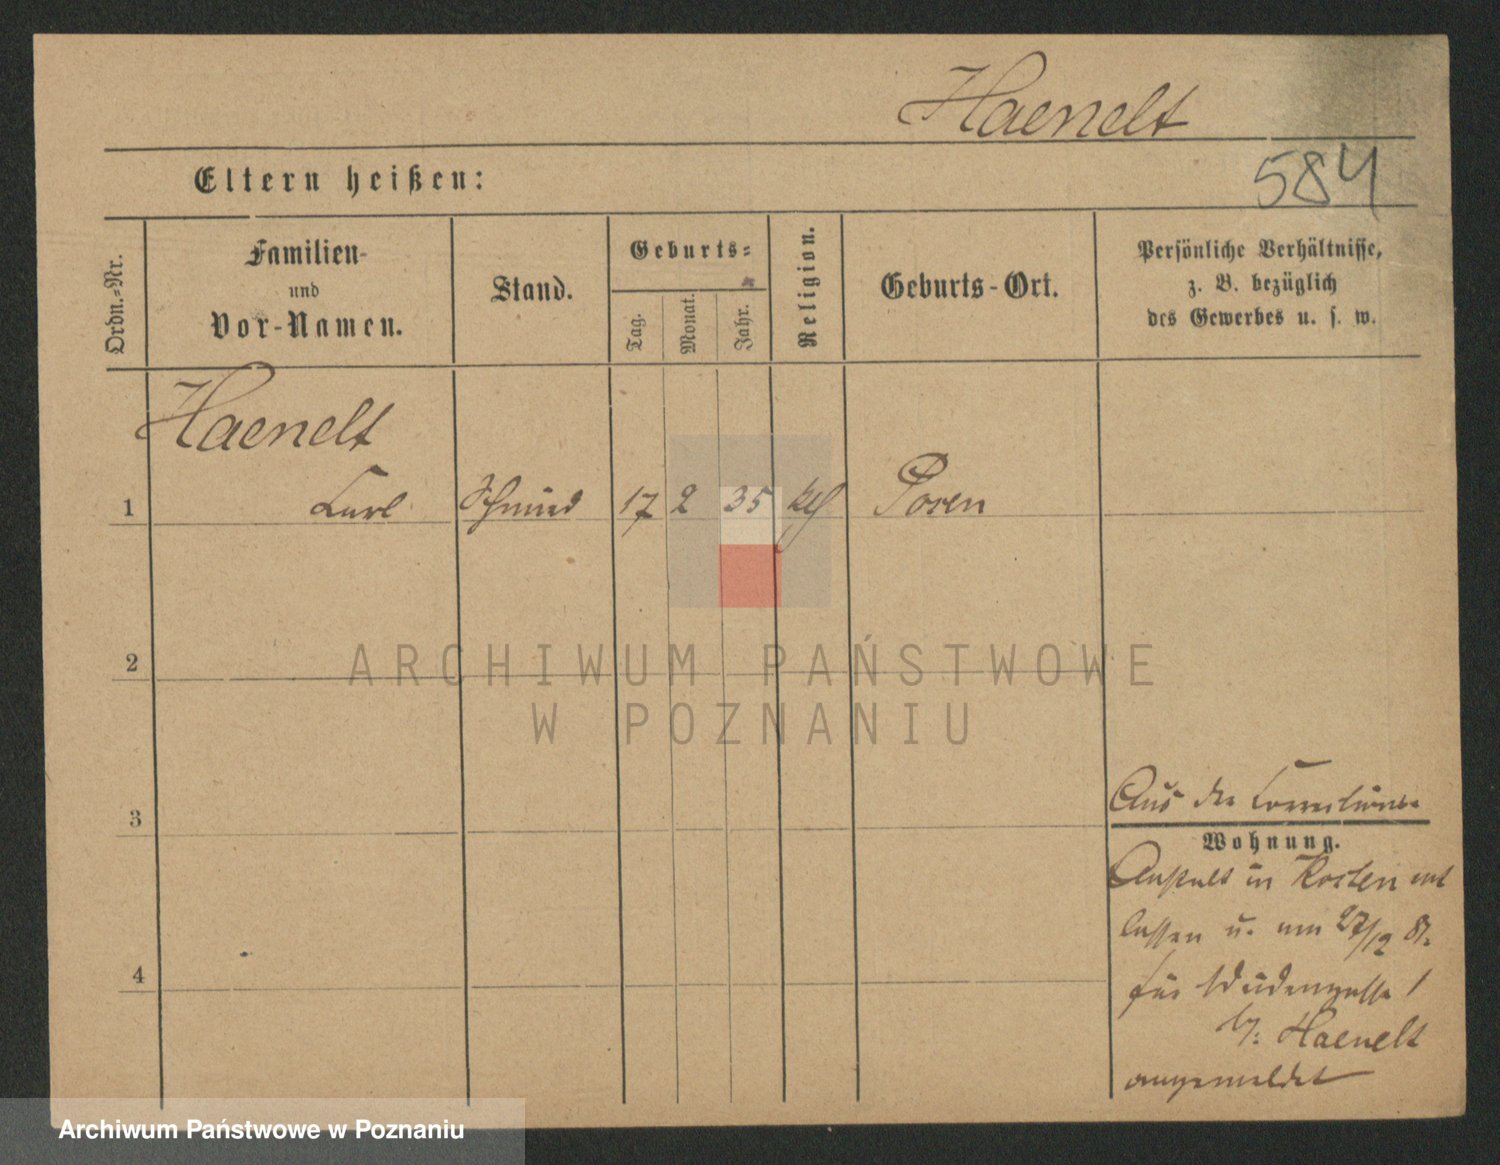 Haenelt
584
Eltern heißen:
Ordn.-Nr.
Familien-
und
Vor-Namen.
Stand.
Geburts-
Tag.
Monat.
Jahr.
Religion.
Geburts-Ort.
Persönliche Verhältnisse,
z. B. bezüglich
des Gewerbes u. s. w.
Haenelt
1 Carl Schmied 17 2 35 kth Posen
2
ARCHIWUM PAŃSTWOWE
W POZNANIU
3
Aus der Corrections-
Wohnung.
Anstalt in Kosten ent
lassen u. am 27/12 81.
4
für Südengasse 1
b/: Haenelt
angemeldet
Archiwum Państwowe w Poznaniu